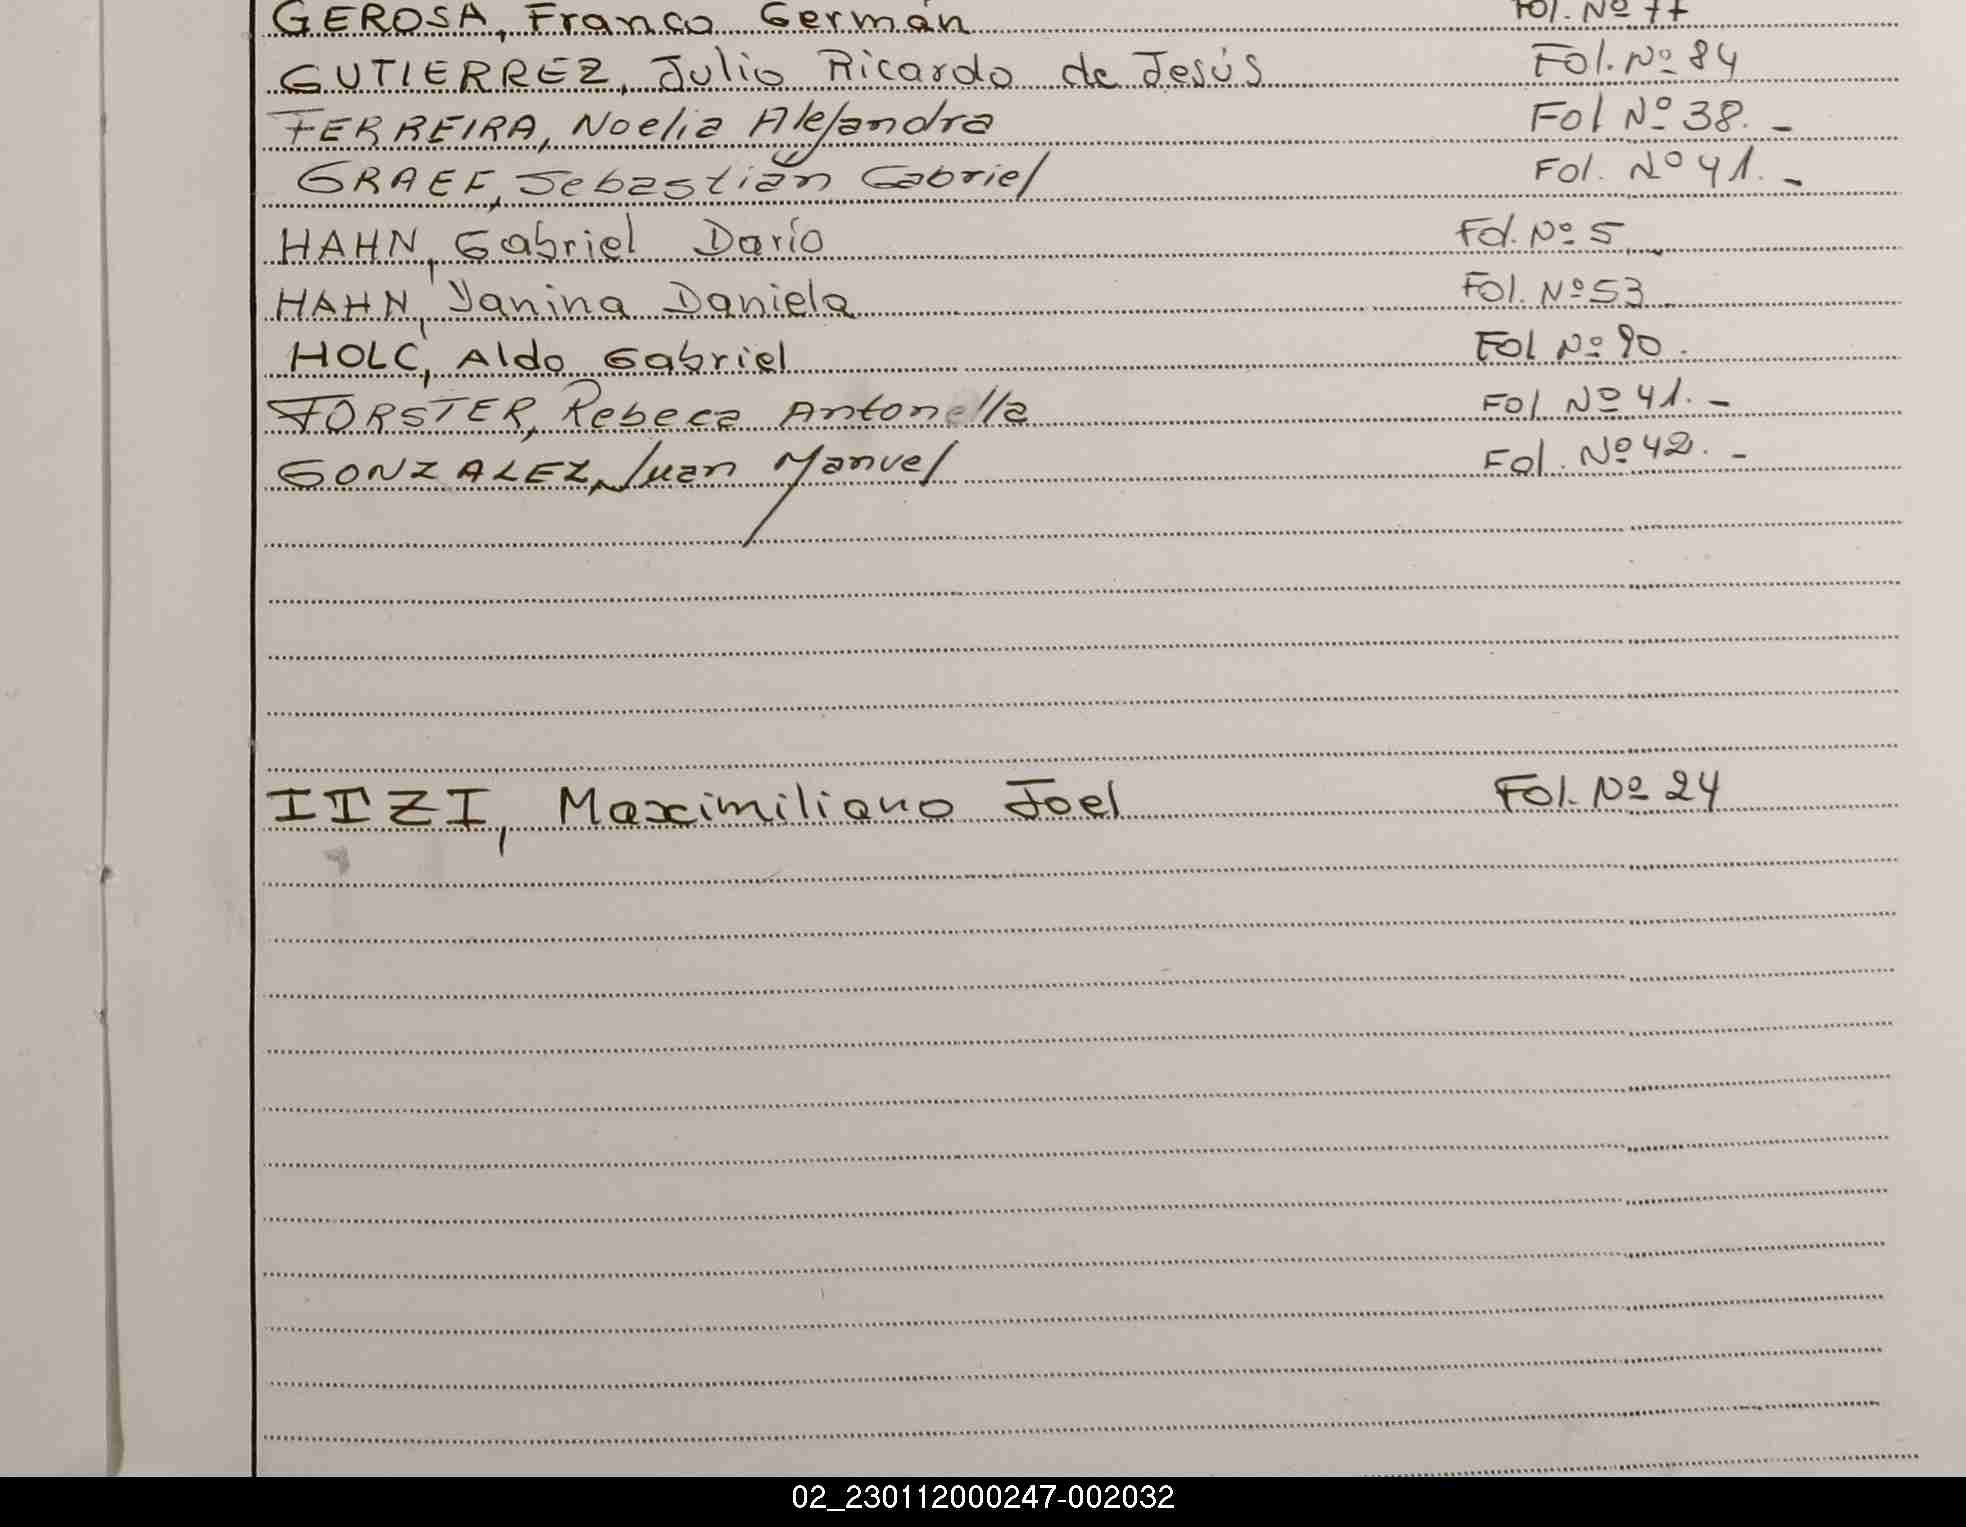 GEROSA, Franco Germán Fol. Nº 77
GUTIERREZ, Julio Ricardo de Jesús Fol. Nº 84
FERREIRA, Noelia Alejandra Fol Nº 38. -
GRAEF, Sebastián Gabriel Fol. Nº 41. -
HAHN, Gabriel Darío Fol. Nº 5
HAHN, Yanina Daniela Fol. Nº 53
HOLC, Aldo Gabriel Fol Nº 90.
FORSTER, Rebeca Antonella Fol Nº 41. -
GONZALEZ, Juan Manuel Fol. Nº 42. -
ITZI, Maximiliano Joel Fol. Nº 24
02_230112000247-002032